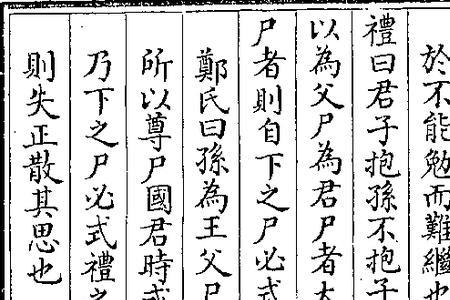 於不能勉而難繼也
禮曰君子抱孫不抱子
以為父尸為君尸者大
尸者則自下之尸必式
鄭氏曰孫為王父尸
所以尊尸國君時或
乃下之尸必式禮之
則失正散其思也